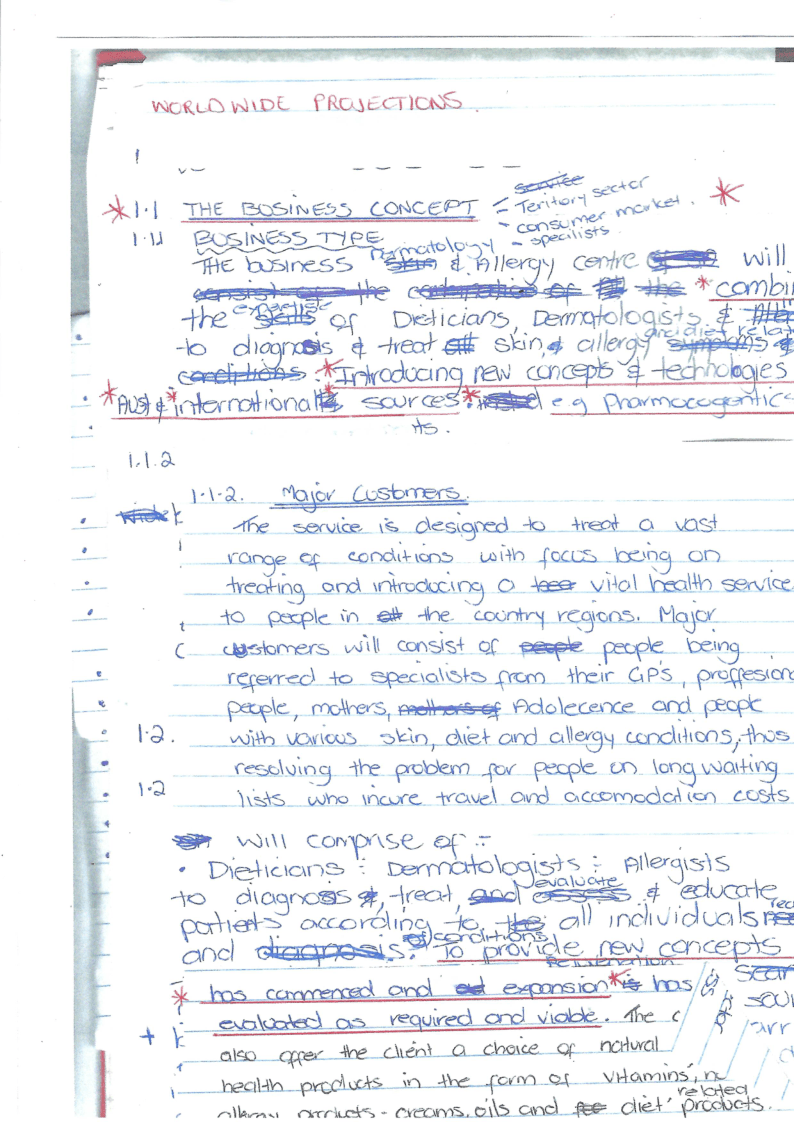 WORLDWIDE PROJECTIONS.
1
service
1.1 THE BUSINESS CONCEPT - Teritory sector
- consumer market.
1.11 BUSINESS TYPE - specilists
Dermatology
THE business skin & Allergy centre will
consist of the combination of the * combi
expertise
the skills of Dieticians, Dermatologists &
and diet relat
to diagnosis & treat all skin, & allergy symptoms &
conditions. * Introducing new concepts & technologies
* Aust & * international sources * e.g Pharmocogentics
ts.
1.1.2
1.1.2. Major Customers.
The service is designed to treat a vast
range of conditions with focus being on
treating and introducing a vital health service
to people in all the country regions. Major
C customers will consist of people people being
referred to specialists from their GP's, proffesion
people, mothers, mothers of Adolecence and people
1.2. with various skin, diet and allergy conditions, thus
resolving the problem for people on long waiting
1.2 lists who incure travel and accomodation costs.
will comprise of :-
• Dieticians : Dermatologists : Allergists
evaluate
to diagnosis &, treat, and assess & educate
patients according to the all individuals
of conditions
and diagnosis. To provide new concepts
rejuvenation
* has commenced and expansion * is has
evaluated as required and viable. The c
also offer the client a choice of natural
health products in the form of vitamins,
related
allergy products - creams, oils and diet products.